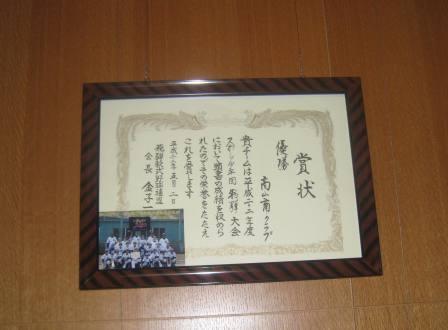 賞状
優勝
南山南クラブ
貴チームは平成二十二年度
大会
において頭書の成績を収めら
れたのでその栄誉をたたえ
これを賞します
平成二十二年五月二日
飛騨軟式野球連盟
会長 金子一